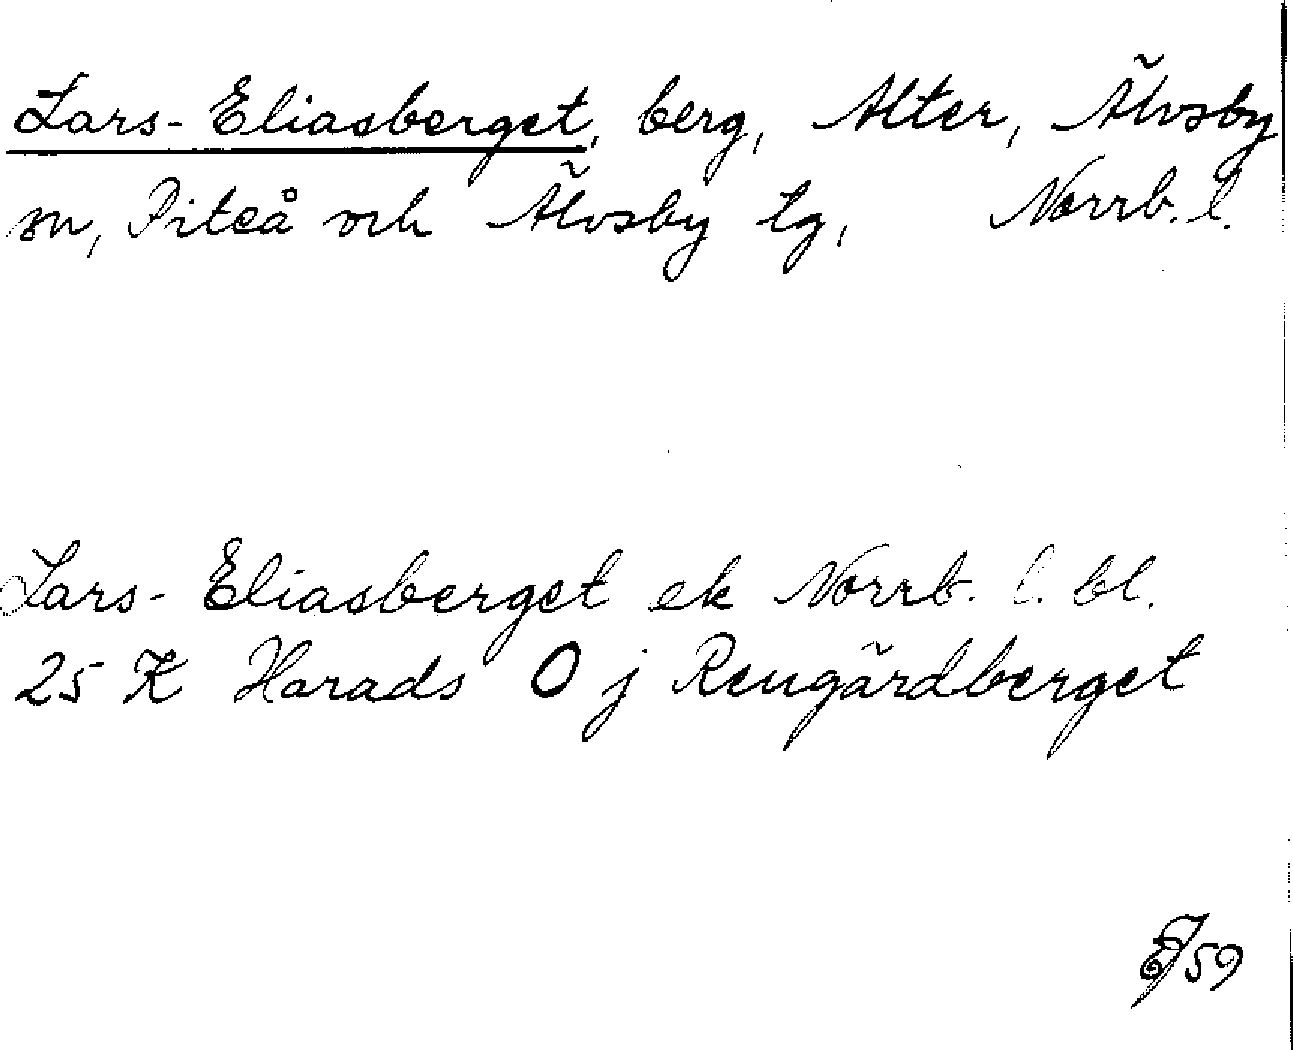 Lars-Eliasberget, berg, Alter, Älvsby
sn, Piteå och Älvsby tg, Norrb. l.
Lars-Eliasberget ek Norrb. l. bl.
25 K Harads O j Rengärdberget
/59